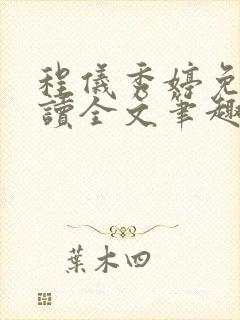 程儀秀婷免
讀全文筆趣
葉木四